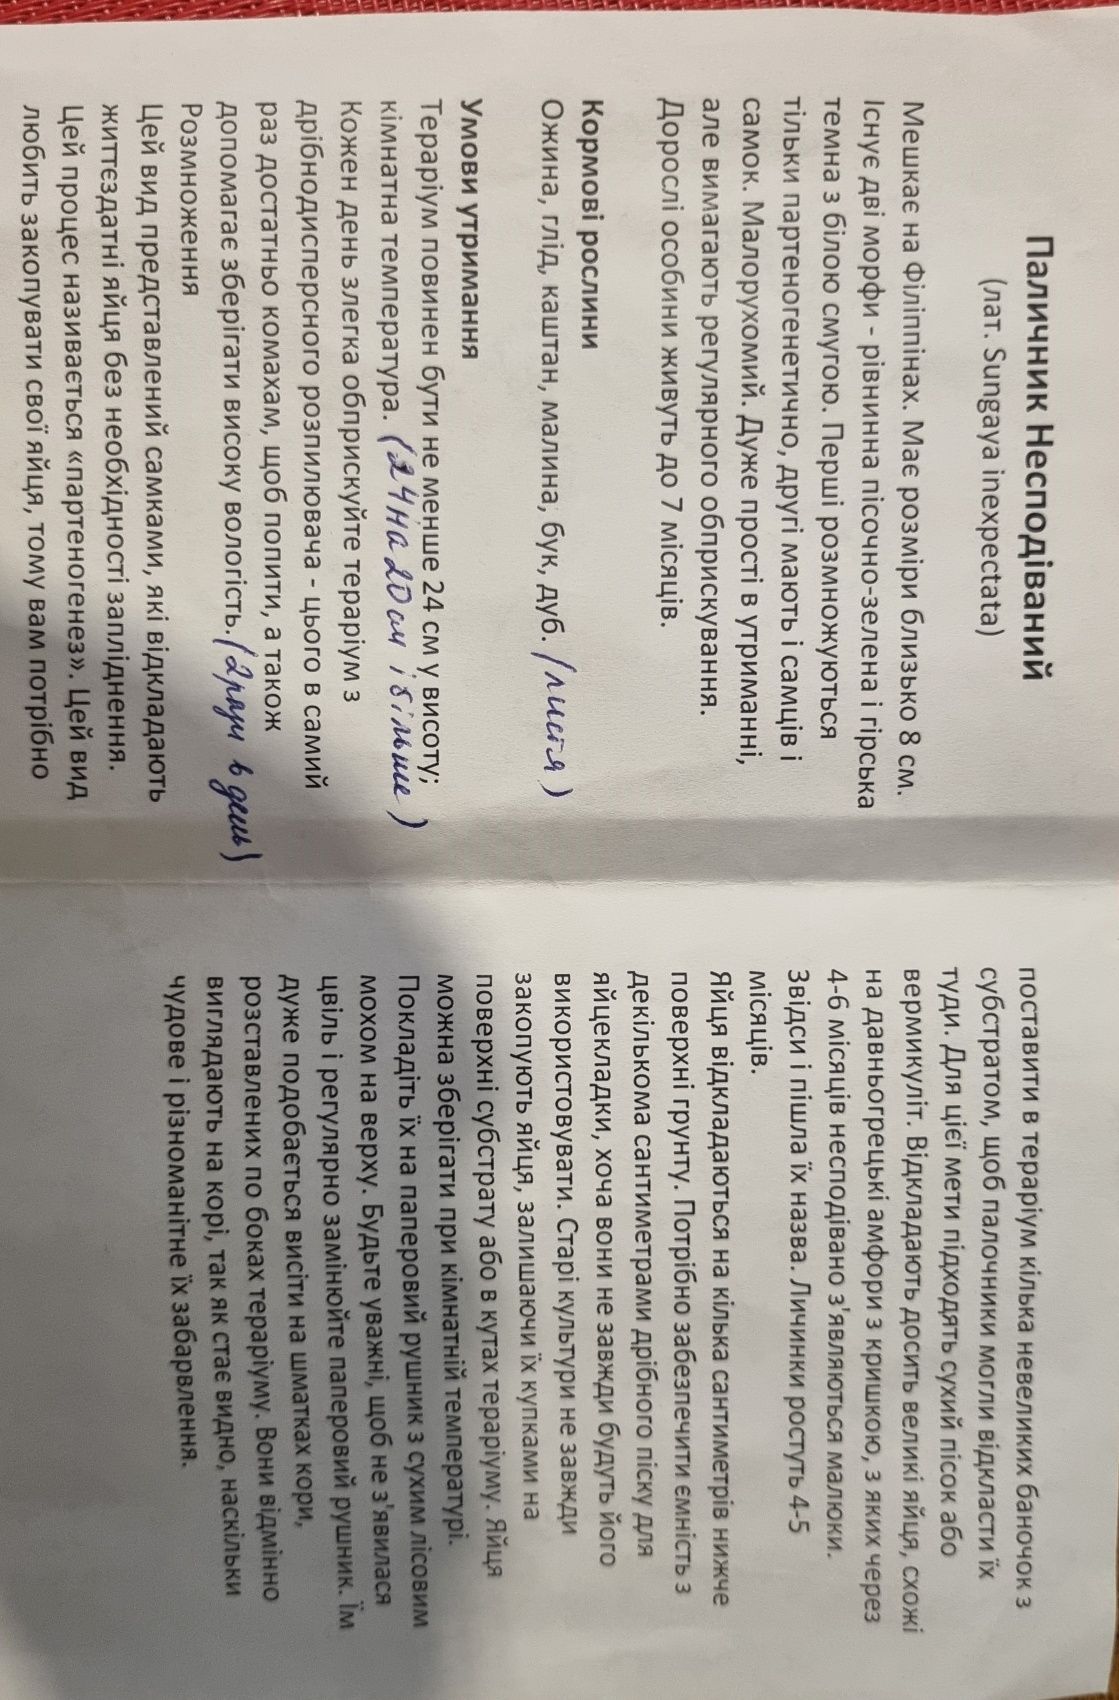 Паличник Несподіваний
(лат. Sungaya inexpectata)
Мешкає на Філіппінах. Має розміри близько 8 см.
Існує дві морфи - рівнинна пісочно-зелена і гірська
темна з білою смугою. Перші розмножуються
тільки партеногенетично, другі мають і самців і
самок. Малорухомий. Дуже прості в утриманні,
але вимагають регулярного обприскування.
Дорослі особини живуть до 7 місяців.
Кормові рослини
Ожина, глід, каштан, малина, бук, дуб. (листя)
Умови утримання
Тераріум повинен бути не менше 24 см у висоту;
кімнатна температура. (24 на 20 см і більше)
Кожен день злегка обприскуйте тераріум з
дрібнодисперсного розпилювача - цього в самий
раз достатньо комахам, щоб попити, а також
допомагає зберігати високу вологість. (2 рази в день)
Розмноження
Цей вид представлений самками, які відкладають
життєздатні яйця без необхідності запліднення.
Цей процес називається «партеногенез». Цей вид
любить закопувати свої яйця, тому вам потрібно
поставити в тераріум кілька невеликих баночок з
субстратом, щоб палочники могли відкласти їх
туди. Для цієї мети підходять сухий пісок або
вермикуліт. Відкладають досить великі яйця, схожі
на давньогрецькі амфори з кришкою, з яких через
4-6 місяців несподівано з'являються малюки.
Звідси і пішла їх назва. Личинки ростуть 4-5
місяців.
Яйця відкладаються на кілька сантиметрів нижче
поверхні грунту. Потрібно забезпечити ємність з
декількома сантиметрами дрібного піску для
яйцекладки, хоча вони не завжди будуть його
використовувати. Старі культури не завжди
закопують яйця, залишаючи їх купками на
поверхні субстрату або в кутах тераріуму. Яйця
можна зберігати при кімнатній температурі.
Покладіть їх на паперовий рушник з сухим лісовим
мохом на верху. Будьте уважні, щоб не з'явилася
цвіль і регулярно замінюйте паперовий рушник. Їм
дуже подобається висіти на шматках кори,
розставлених по боках тераріуму. Вони відмінно
виглядають на корі, так як стає видно, наскільки
чудове і різноманітне їх забарвлення.